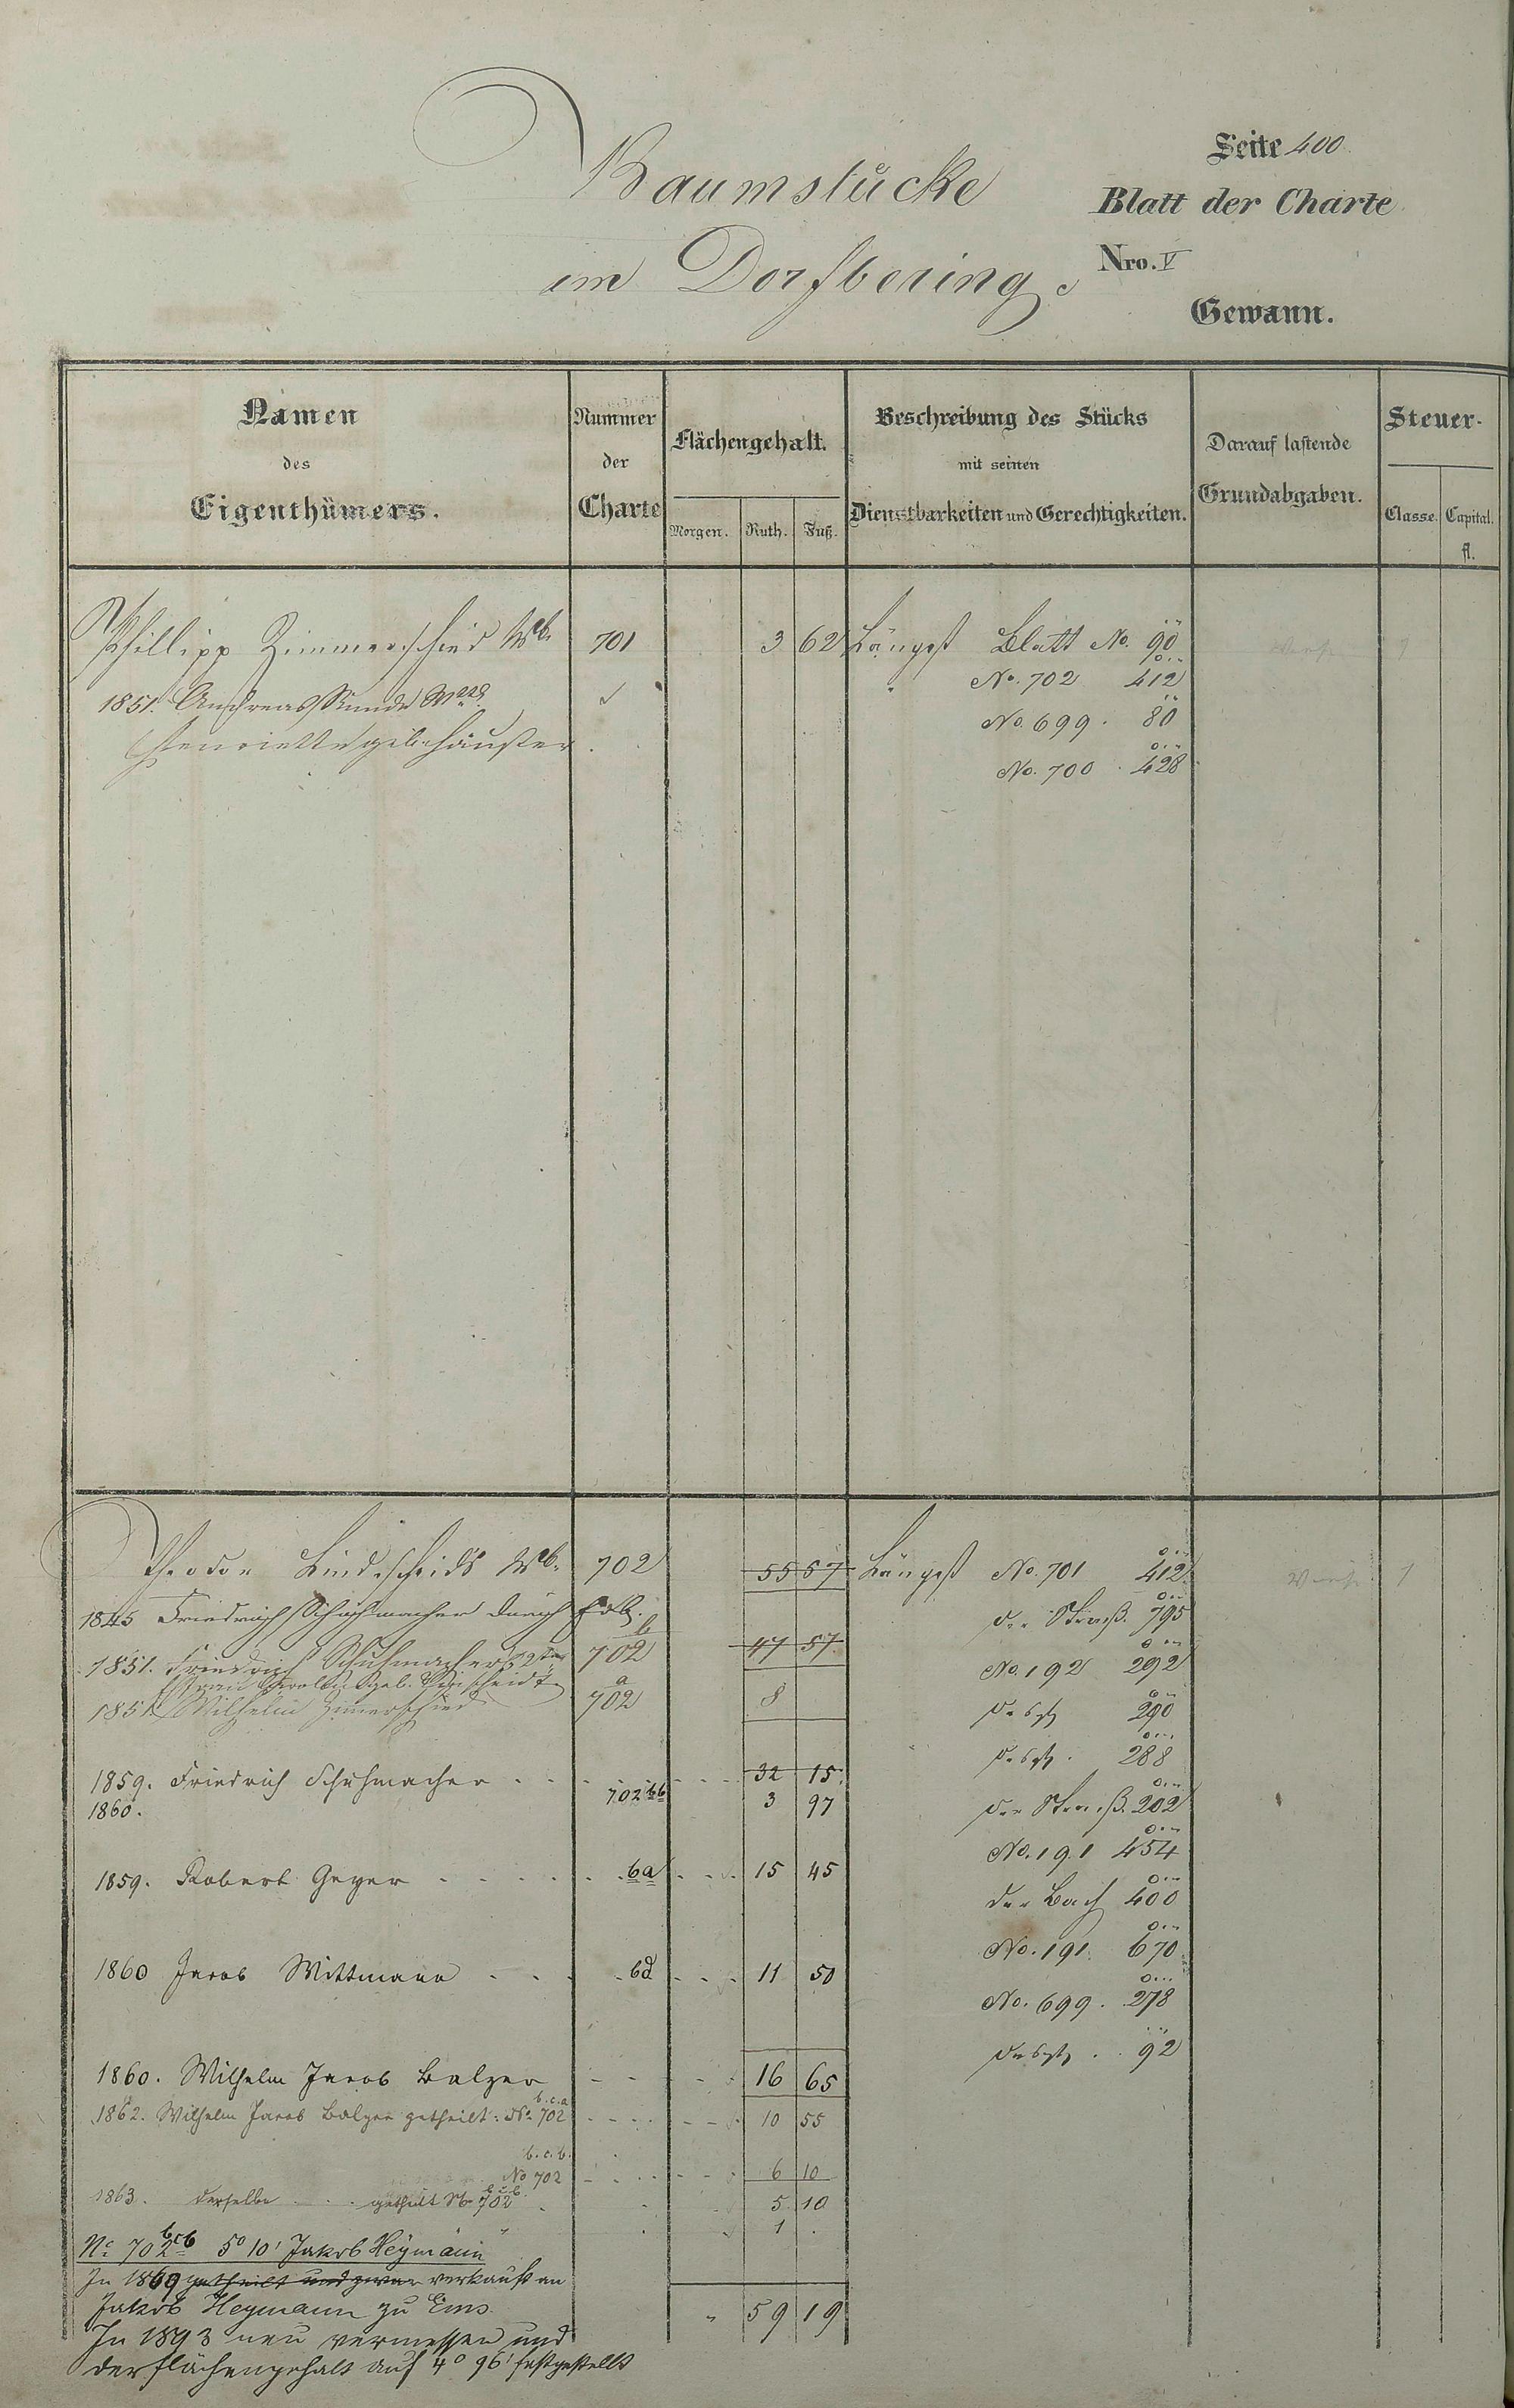 Seite 400.
Baumstücke
Blatt der Charte
im Dorfbering.
Nro. V
Gewann.
Namen
des
Eigenthümers.
Nummer
der
Charte
Flächengehalt.
Morgen. Ruth. Fuß.
Beschreibung des Stücks
mit seinen
Dienstbarkeiten und Gerechtigkeiten.
Darauf lastende
Grundabgaben.
Steuer-
Classe. Capital.
fl.
Phillipp Zimmerschied Wb. 701 3 62 Längst Blatt No. 90
No. 702 412
1851. Andreas
No. 699. 80
Henriette geb. Häuser
No. 700 428
Theodor Lindscheids Wb. 702 55 57 Längst No. 701 412 1
1845 Friedrich Schuhmacher durch
der Straß. 795
1851. Friedrich Schuhmacher 2ter 702 b 47 57
No. 192 292
1851 Wilhelm Zimerschied 702 a 8
290
288
1859. Friedrich Schuhmacher 32 15
1860. 702 bb 3 97
der Straß. 202
No. 191 454
1859. Robert Geyer ba 15 45
der Bach 400
No. 191. 670
1860 Jacob Wittmann bd 11 50
No. 699. 278
92
1860. Wilhelm Jacob Balzer 16 65
1862. Wilhelm Jacob Balzer getheilt: No. 702 b.c.a 10 55
b.c.b.
No 702 6 10
1863. derselbe getheilt No 702 b.c.b. 5 10
1
No 702 bcb 5° 10' Jakob Heymann
In 1869 getheilt und zwar verkauft an
Jakob Heymann zu Ems.
59 19
In 1893 neu vermessen und
der flächengehalt auf 4° 96' festgestellt